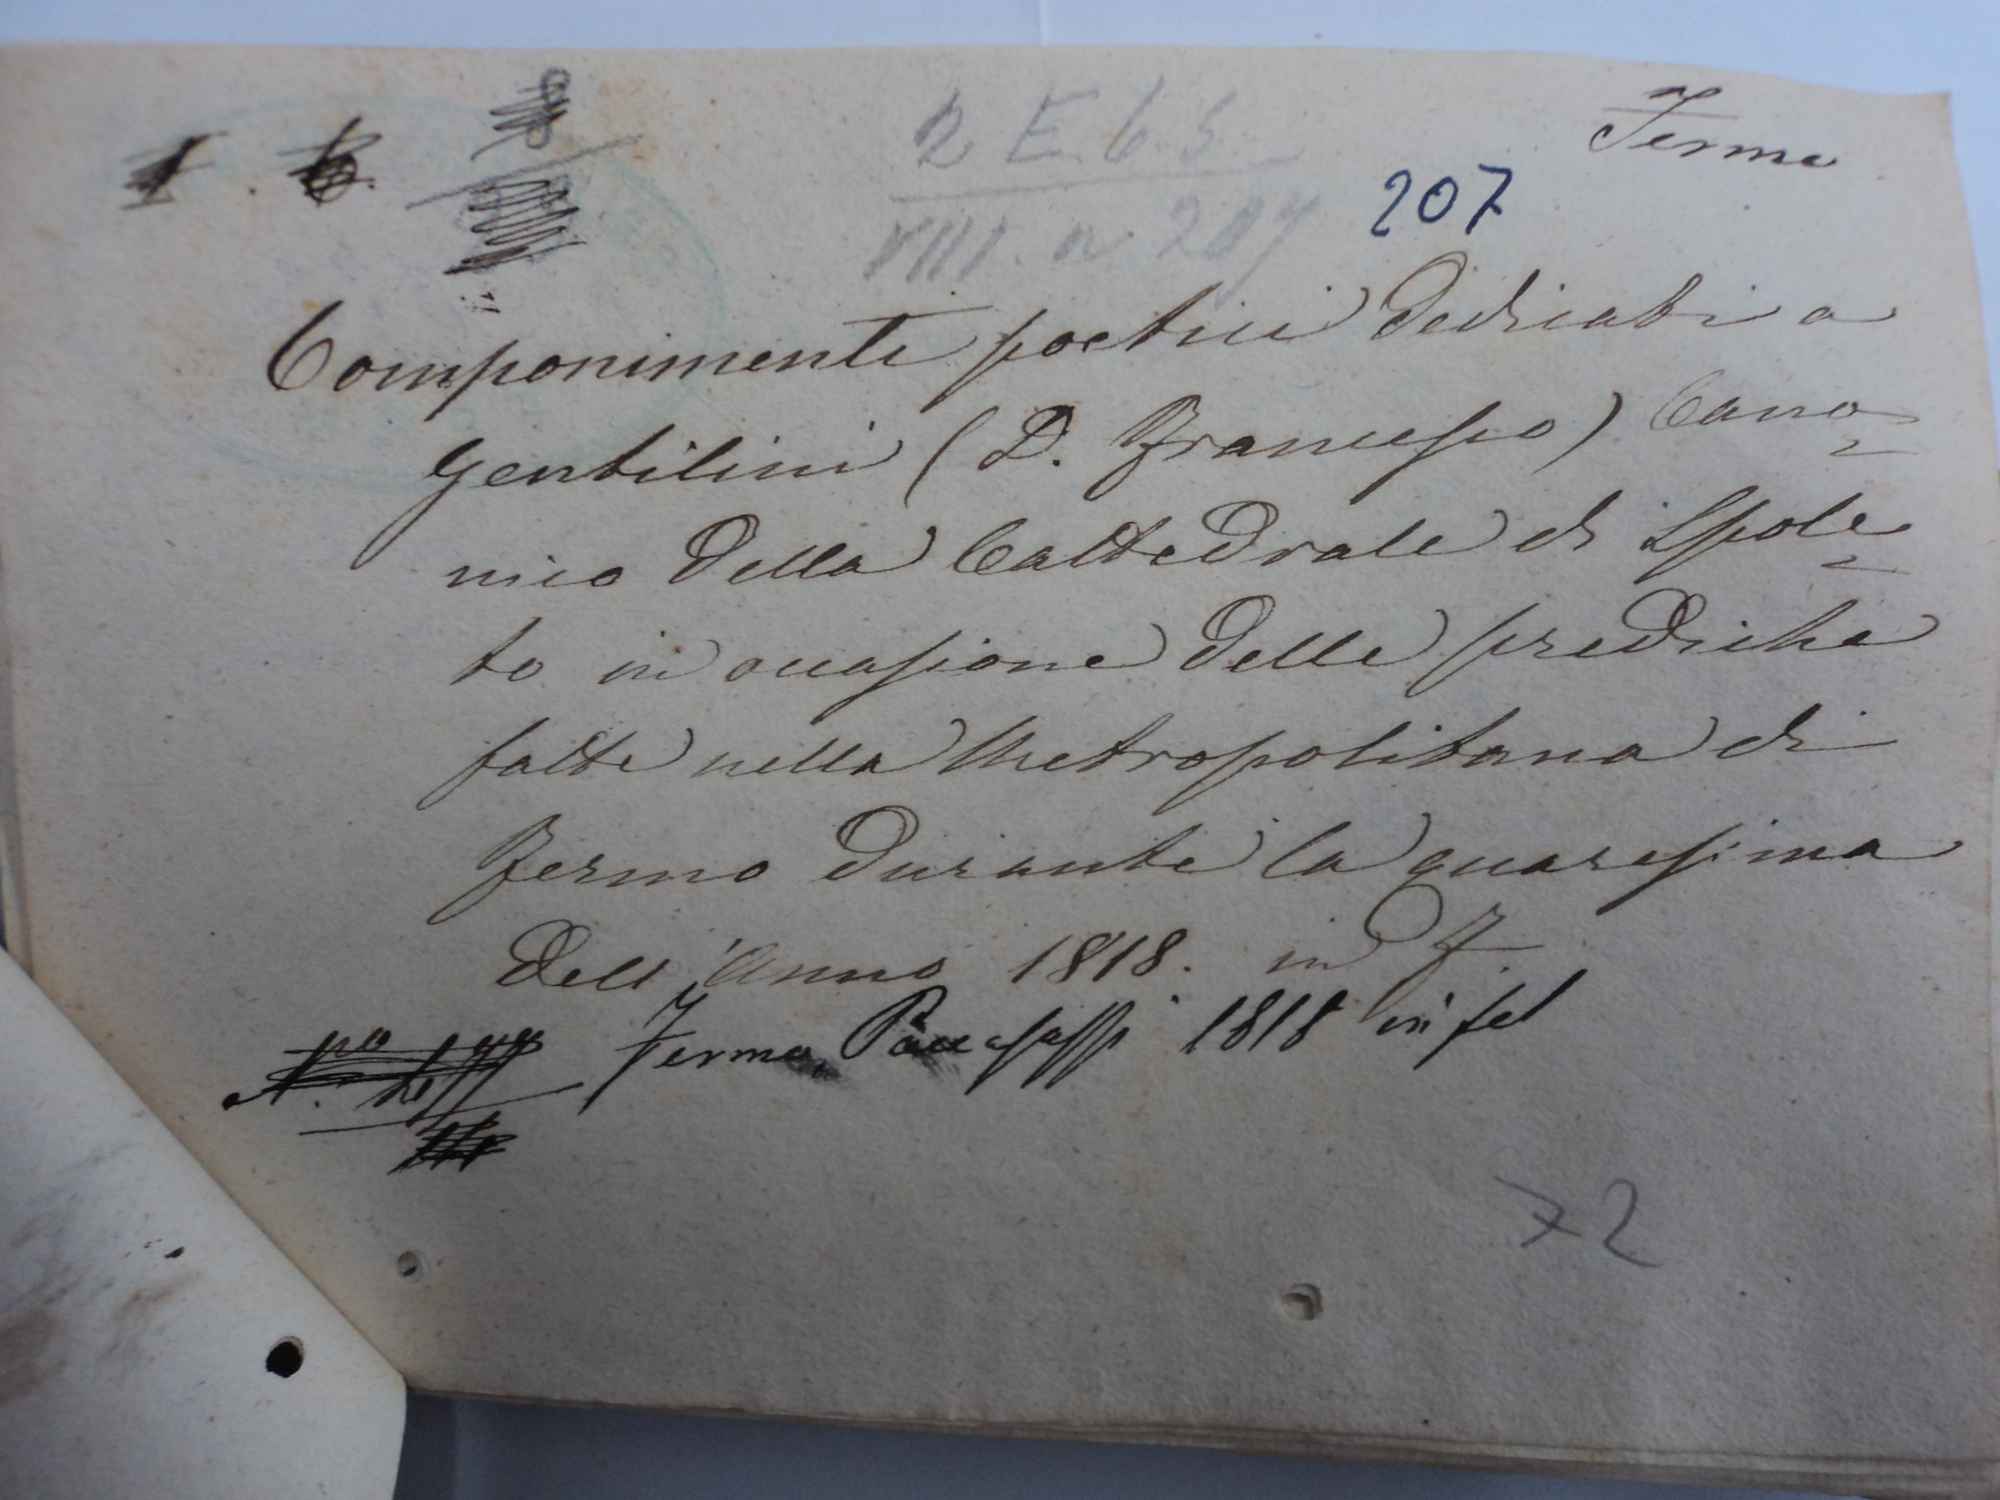 Fermo
2 E 6 3
VIII. n. 207
207
Componimenti poetici dedicati a
Gentilini (D. Francesco) Cano=
nico della Cattedrale di Spole=
to in occasione delle prediche
fatte nella Metropolitana di
Fermo durante la quaresima
dell'Anno 1818. in F.
Fermo, Paccasassi 1818 in fol
72